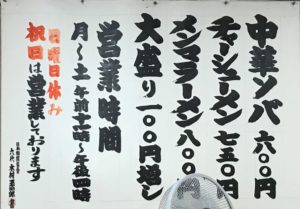 中華ソバ 六〇〇円
チャーシューメン 七五〇円
メンマラーメン 八〇〇
大盛り 一〇〇円増し
営業時間
月〜土 午前十一時〜午後四時
日曜日休み
祝日は営業しております